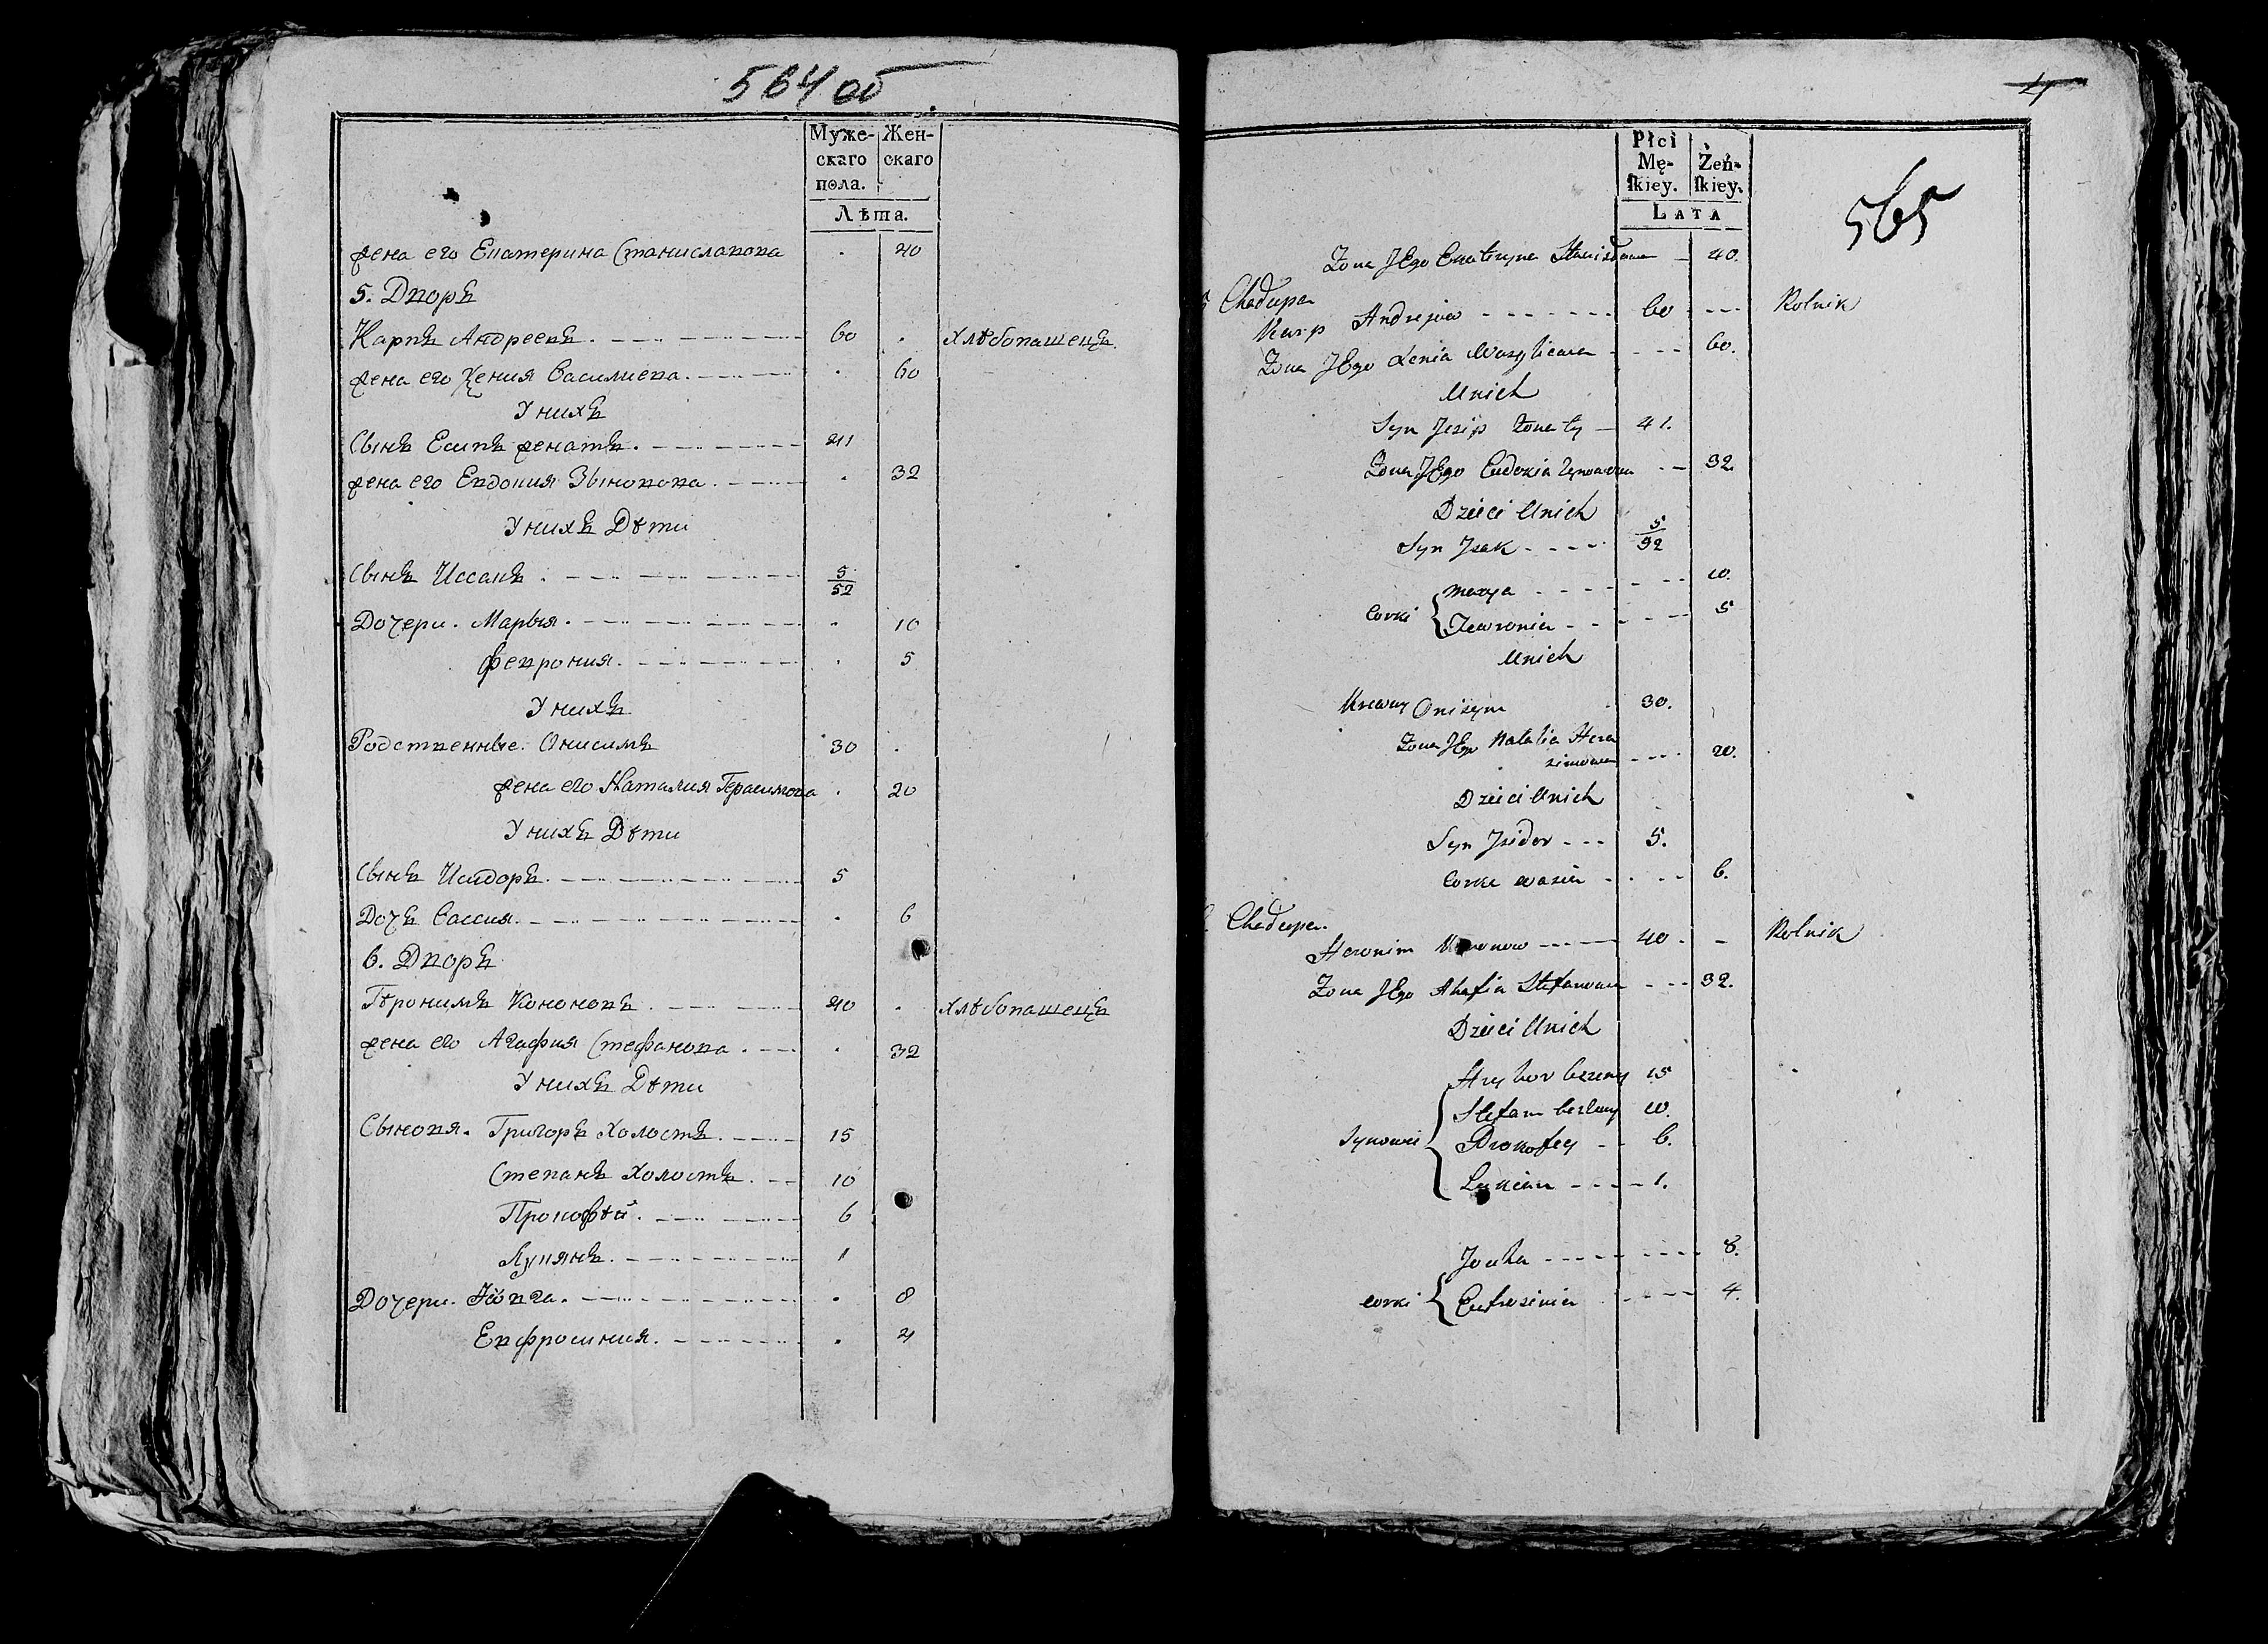 564 об
Муже-
скаго
пола.
Жен-
скаго
Лѣта.
жена его Екатерина Станиславова . 40
5. Дворъ
Карпъ Андреевъ. 60 . хлѣбопашецъ.
жена его Ксения Василиева. . 60
У нихъ
Сынъ Есипъ женатъ. 41
жена его Евдокия Зѣновова. . 32
У нихъ Дѣти
Сынъ Иссакъ. 5/52
Дочери. Марья. . 10
Феврония. . 5
У нихъ
Родственные. Онисимъ 30 .
жена его Наталия Герасимова . 20
У нихъ Дѣти
Сынъ Исидоръ. 5
Дочь Вассия. . 6
6. Дворъ
Геронимъ Кононовъ. 40 . хлѣбопашецъ
жена его Агафия Стефанова. . 32
У нихъ Дѣти
Сыновя. Григоръ холостъ. 15
Степанъ холостъ. 10
Прокофѣй. 6
Лукянъ. 1
Дочери. Іовга. . 8
Евфросиния. . 4
4
565
Płci
Mę-
skiey.
Żeń-
skiey.
LATA
Zona JEgo Ekateryna Stanisławowa 40.
5 Chałupa
Karp Andrejew 60 Rolnik
Zona JEgo Xenia Wasyliewa 60.
Unich
Syn Jesip żonaty 41.
Zona JEgo Eudoxia 32.
Dzieci Unich
Syn Jsak 5/92
Corki { Marya 10.
Fewronia 5
Unich
Krewny Onisym 30.
Zona JEgo Natalia Hera
simowa 20.
Dzieci Unich
Syn Jsidor 5.
Corka Wasia 6.
Chałupa.
Heronim Kononow 40. Rolnik
Zona JEgo Ahafia Stefanowa 32.
Dzieci Unich
Synowie { Hryhor bezżeny 15
Stefan bezżeny 10.
Prokofey 6.
Lukian 1.
Jouha 8.
corki { Eufrosinia 4.